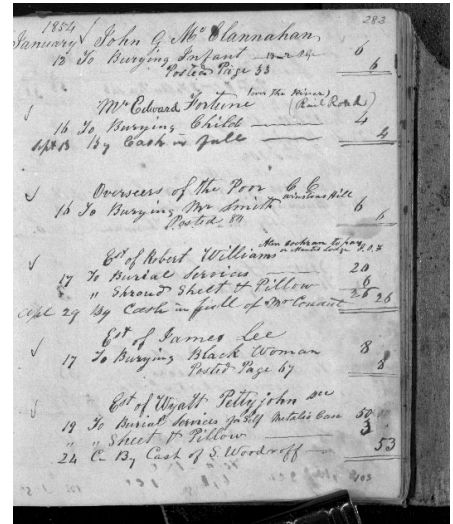 283
1854
January John G McClannahan
13 To Burying Infant 6
Posted Page 33 6
Mr Edward Fortune (over The River) (Rail Road)
16 To Burying Child 4
Sept 13 By Cash in full 4
Overseers of the Poor C C
16 To Burying Mr Smith Winstons Hill 6
Posted 84 6
Est of Robert Williams Alen Cochran to pay
17 To Burial Services 20
" Shroud Sheet & Pillow 6
Apl 29 By Cash in full of Mr Conaut 26 26
Est of James Lee
17 To Burying Black Woman 8
Posted Page 67 8
Est of Wyatt Pettyjohn Dec
19 To Burial Services for Self Metalic Case 50
" " Sheet & Pillow 3
24 C By Cash of S. Woodroff 53